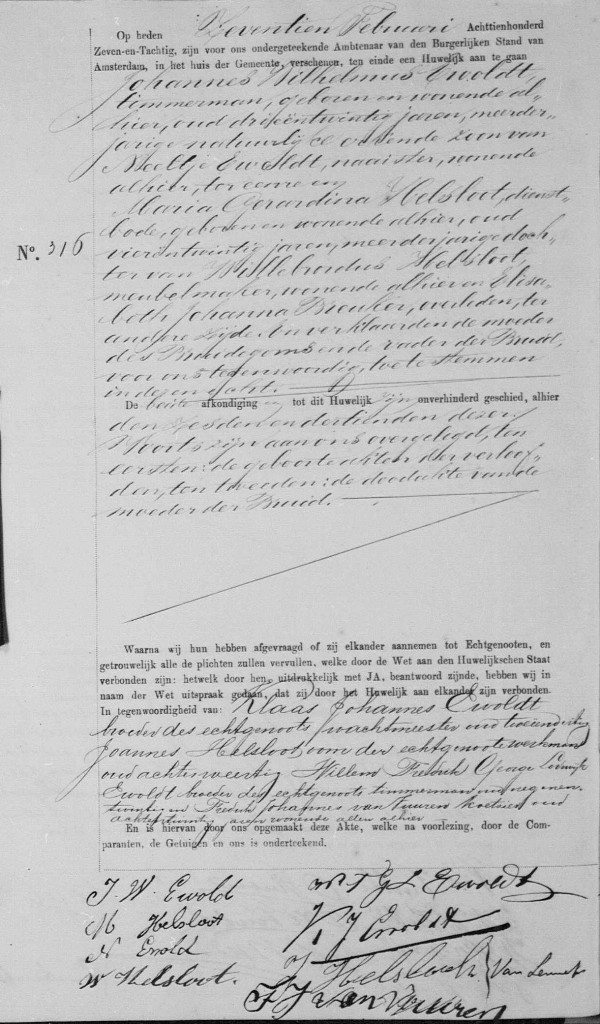 Op heden Zeventien Februari Achttienhonderd
Zeven-en-Tachtig, zijn voor ons ondergeteekende Ambtenaar van den Burgerlijken Stand van
Amsterdam, in het huis der Gemeente, verschenen, ten einde een Huwelijk aan te gaan
Johannes Wilhelmus Ewoldt,
timmerman, geboren en wonende al-
hier, oud drieëntwintig jaren, meerder-
jarige natuurlijke erkende zoon van
Neeltje Ewoldt, naaister, wonende
alhier, ter eenre en
Maria Gerardina Helsloot, dienst-
bode, geboren en wonende alhier, oud
vierentwintig jaren, meerderjarige doch-
No. 316
ter van Willebrordus Helsloot,
meubelmaker, wonende alhier en Elisa-
beth Johanna Breuker, overleden, ter
andere zijde. En verklaarden de moeder
des Bruidegoms en de vader der Bruid,
voor ons tegenwoordig, toe te stemmen
in dezen echt.
De beide afkondigingen tot dit Huwelijk zijn onverhinderd geschied, alhier
den zesden en dertienden dezer.
Voorts zijn aan ons overgelegd, ten
eersten: de geboorteakten der verloof-
den, ten tweeden: de doodakte van de
moeder der Bruid.
Waarna wij hun hebben afgevraagd of zij elkander aannemen tot Echtgenooten, en
getrouwelijk alle de plichten zullen vervullen, welke door de Wet aan den Huwelijkschen Staat
verbonden zijn: hetwelk door hen, uitdrukkelijk met JA, beantwoord zijnde, hebben wij in
naam der Wet uitspraak gedaan, dat zij door het Huwelijk aan elkander zijn verbonden.
In tegenwoordigheid van: Klaas Johannes Ewoldt
broeder des echtgenoots wachtmeester oud tweeendertig
Joannes Helsloot oom der echtgenoote werkman
oud achtenveertig Willem Fredrik George Lodewijk
Ewoldt broeder des echtgenoots timmerman oud negenen-
twintig en Fredrik Johannes van Vuuren koetsier oud
achtentwintig jaren wonende allen alhier
En is hiervan door ons opgemaakt deze Akte, welke na voorlezing, door de Com-
paranten, de Getuigen en ons is onderteekend.
J. W. Ewold
W F G L Ewoldt
M Helsloot
K J Ewoldt
N Ewold
W Helsloot.
J Helsloot
Van Lennep
F J van Vuuren